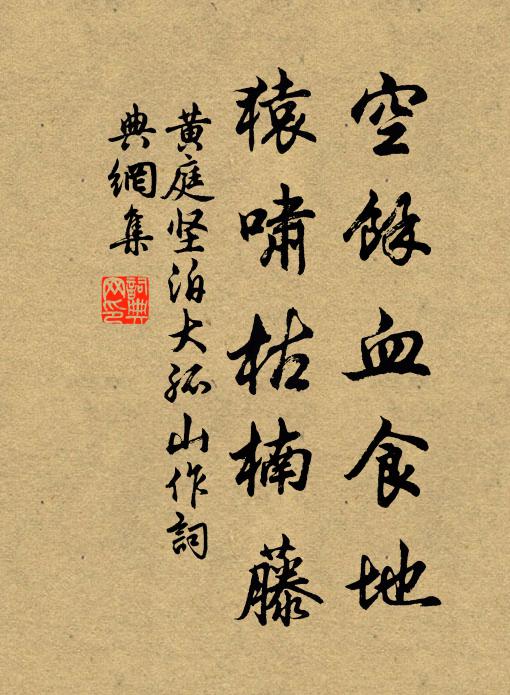 空餘血食地
猿嘯枯楠藤
黄庭坚泊大孤山作詞
典網集
詞典
网印